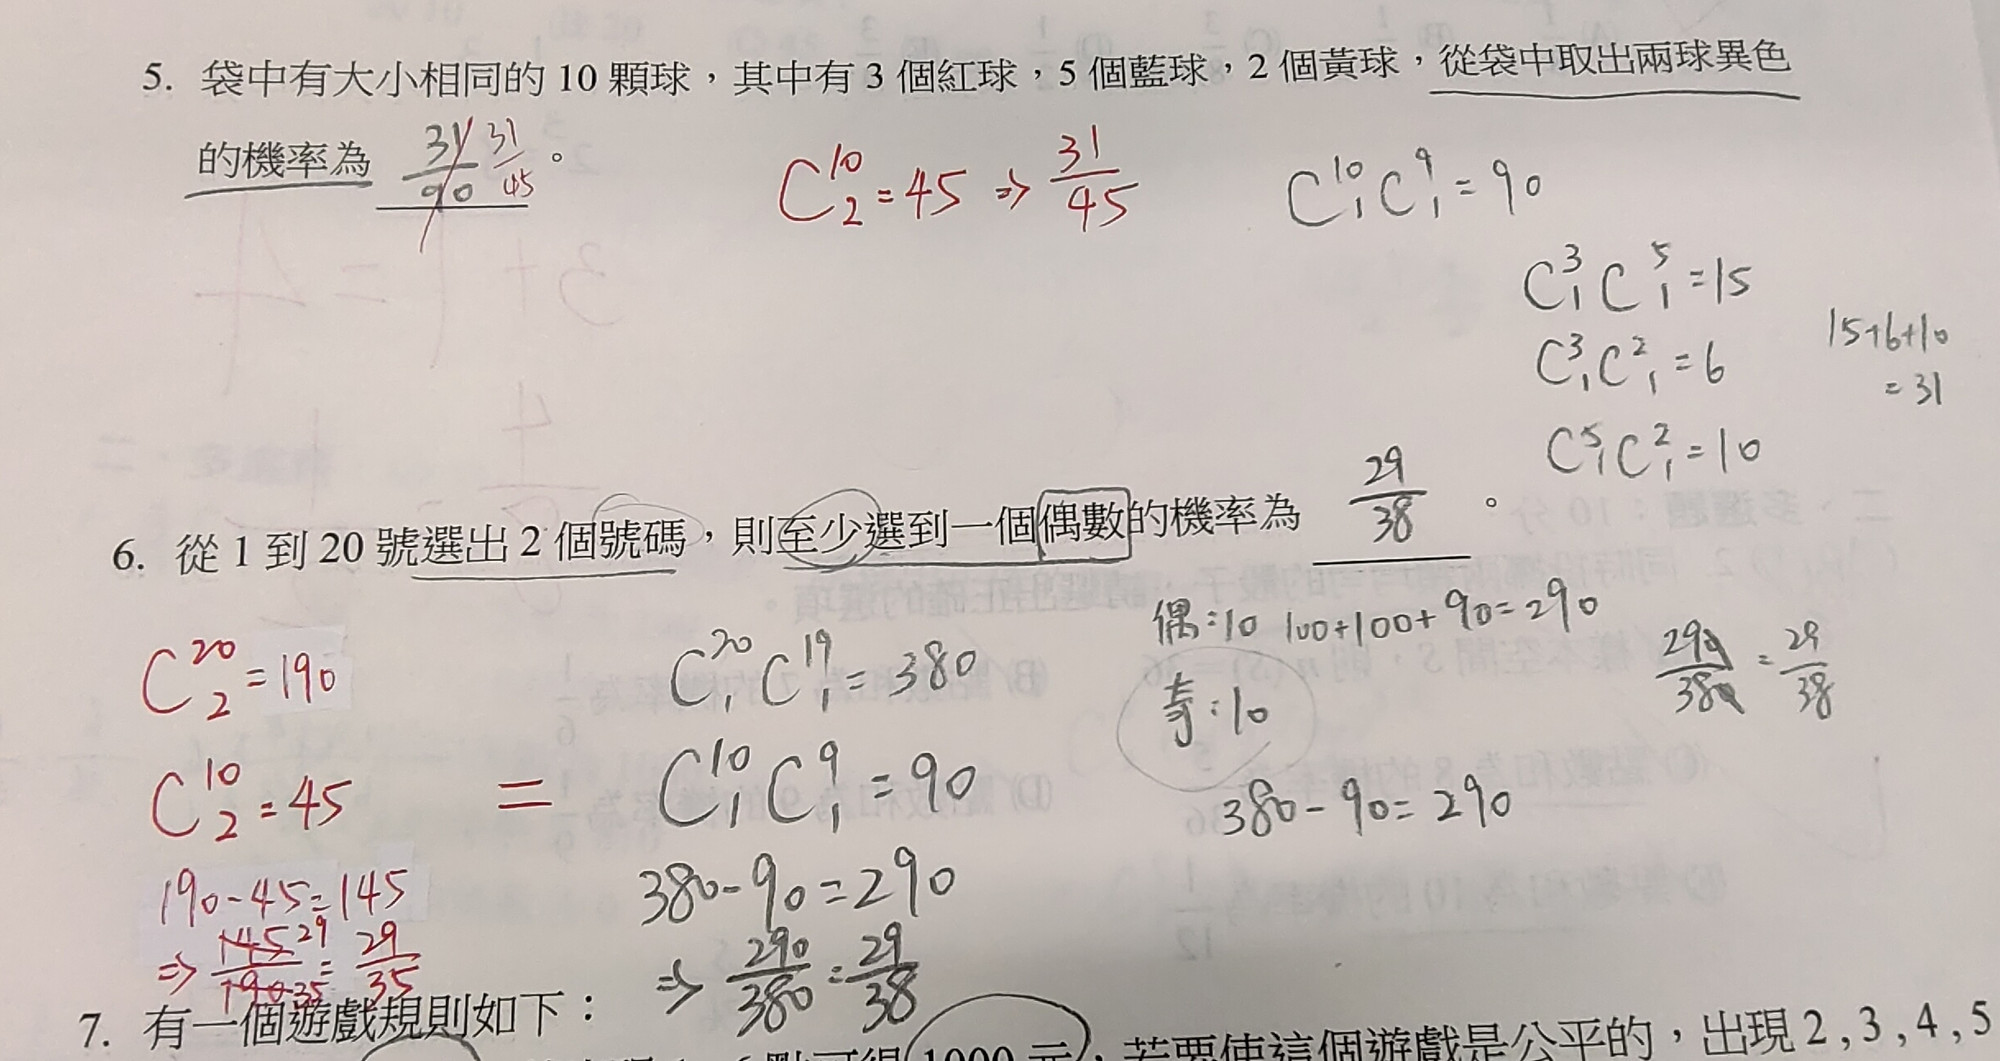 5. 袋中有大小相同的 10 顆球，其中有 3 個紅球，5 個藍球，2 個黃球，從袋中取出兩球異色
的機率為 31/90 31/45 。
C¹⁰₂=45 ⇒ 31/45
C¹⁰₁C⁹₁=90
C³₁C⁵₁=15
C³₁C²₁=6
C⁵₁C²₁=10
15+6+10
=31
6. 從 1 到 20 號選出 2 個號碼，則至少選到一個偶數的機率為 29/38 。
C²⁰₂=190
C¹⁰₂=45
190-45=145
⇒ 145/190 29/35 = 29/35
=
C²⁰₁C¹⁹₁=380
C¹⁰₁C⁹₁=90
380-90=290
⇒ 290/380=29/38
偶:10 100+100+90=290
奇:10
290/380=29/38
380-90=290
7. 有一個遊戲規則如下：
1000 元，若要使這個遊戲是公平的，出現 2 , 3 , 4 , 5